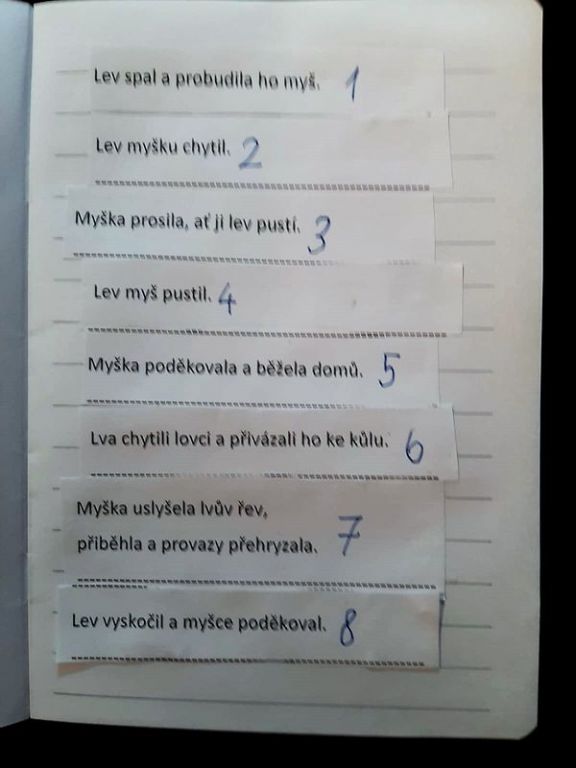 Lev spal a probudila ho myš. 1
Lev myšku chytil. 2
Myška prosila, ať ji lev pustí. 3
Lev myš pustil. 4
Myška poděkovala a běžela domů. 5
Lva chytili lovci a přivázali ho ke kůlu. 6
Myška uslyšela lvův řev,
přiběhla a provazy přehryzala. 7
Lev vyskočil a myšce poděkoval. 8